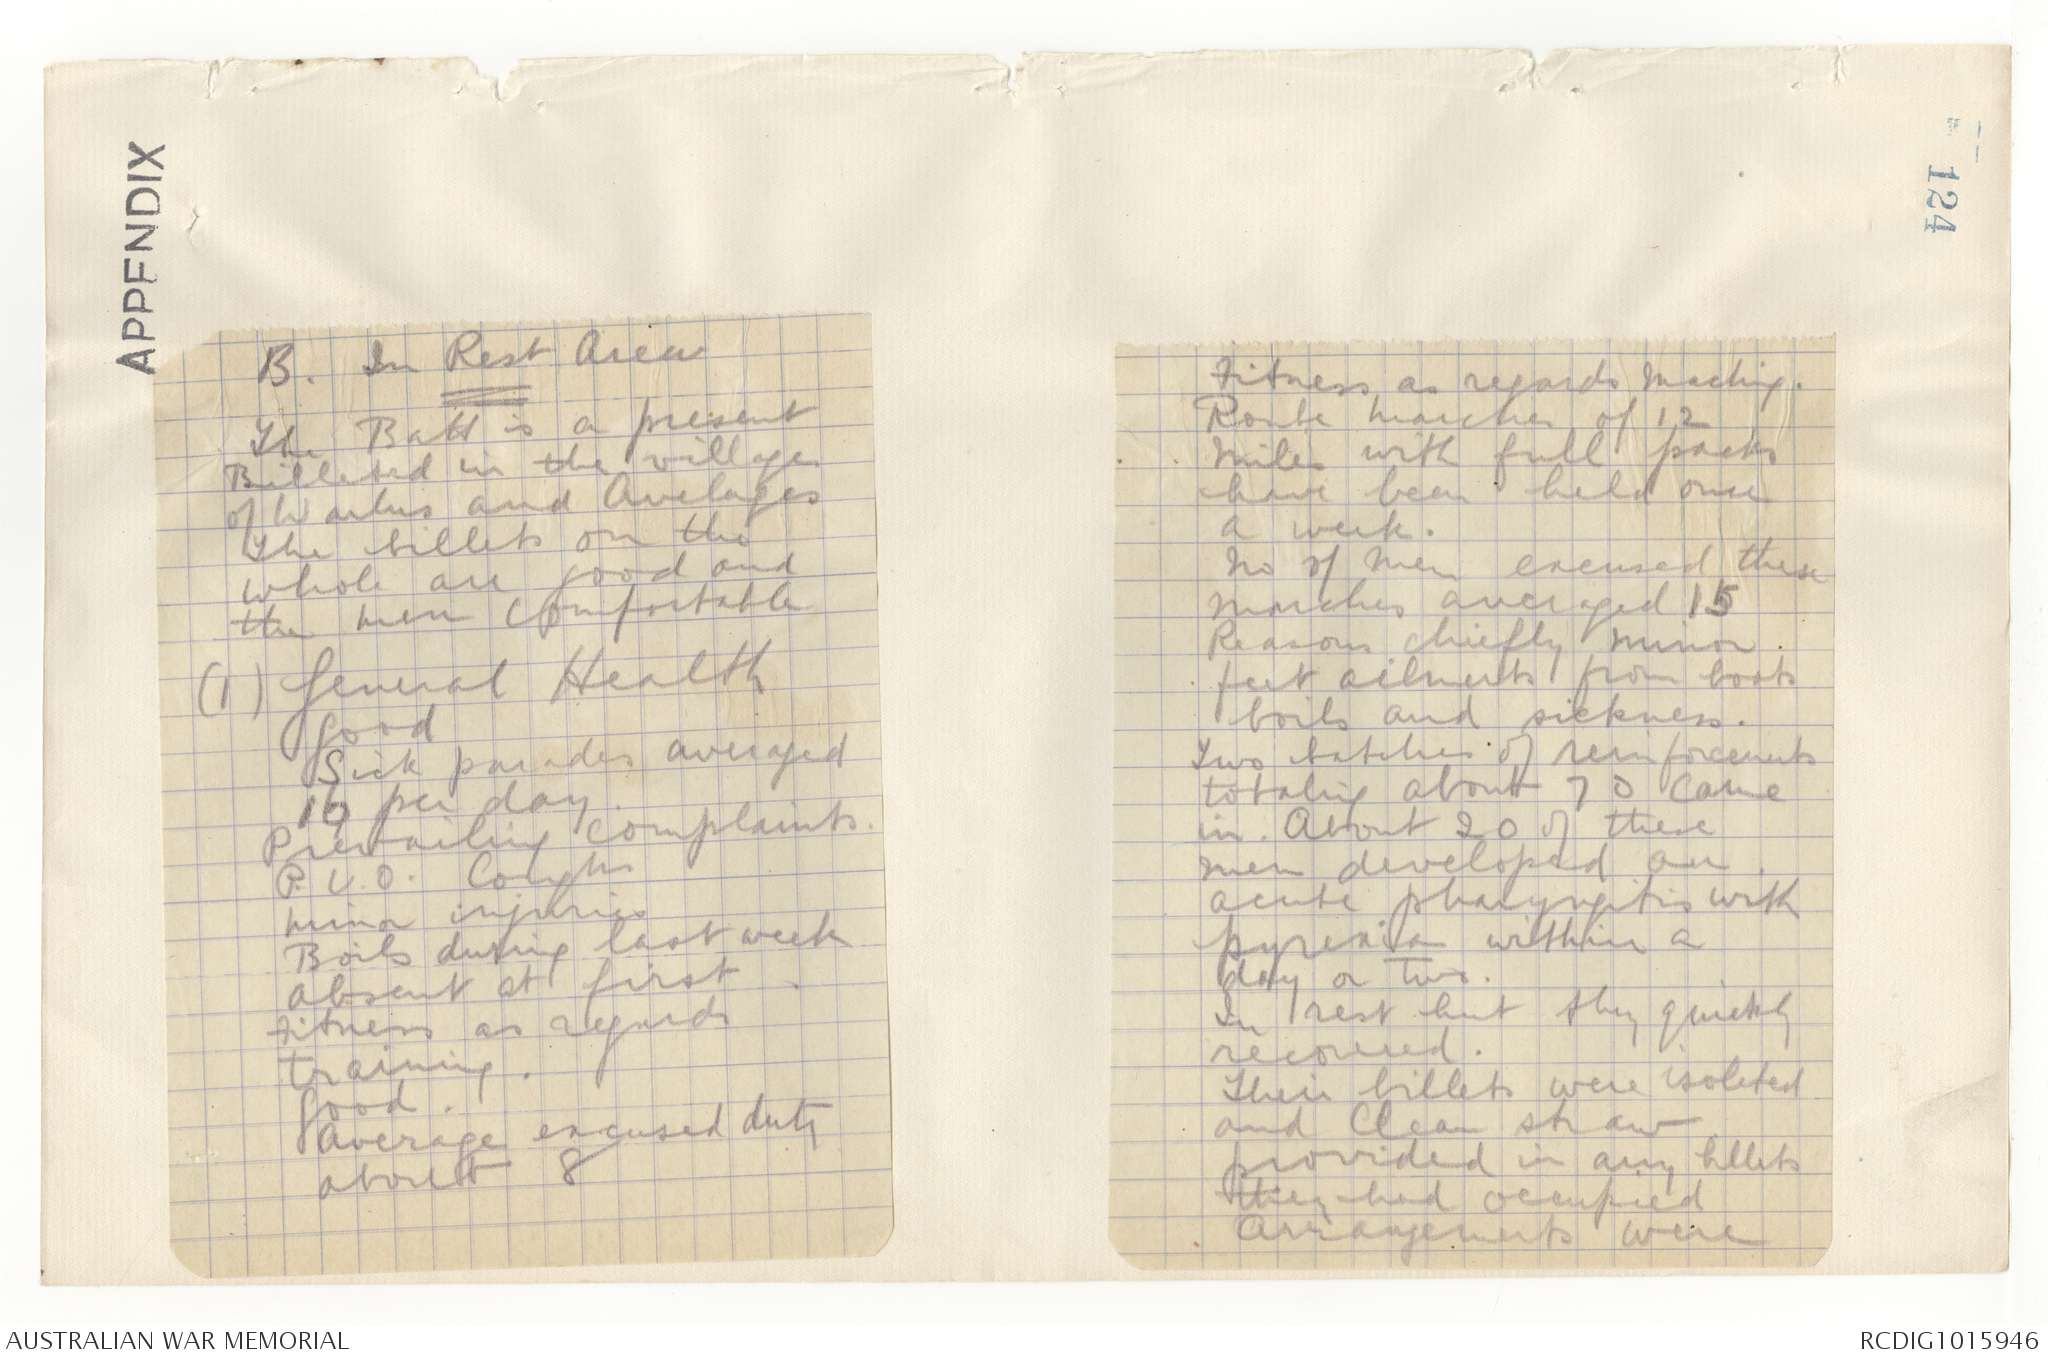 APPENDIX
124
B. In Rest Area
The Batt is a present
Billeted in the villages
of Warlus and Avelages
The billets on the
whole are good and
the men comfortable
(1) General Health
Good
Sick parades averaged
16 per day.
Prevailing complaints.
P.U.O. Coughs
minor injuries
Boils during last week
absent at first
Fitness as regards
training.
Good.
Average excused duty
about 8
Fitness as regards Maching.
Route marches of 12
miles with full packs
have been held once
a week.
No of men excused these
marches averaged 15
Reasons chiefly minor
feet ailments from boots
boils and sickness.
Two batches of reinforcements
totaling about 70 came
in. About 20 of these
men developed an
acute pharyngitis with
pyrexia within a
day or two.
In rest hut they quickly
recovered.
Their billets were isolated
and Clean straw
provided in any billets
they had occupied
Arrangements were
AUSTRALIAN WAR MEMORIAL
RCDIG1015946